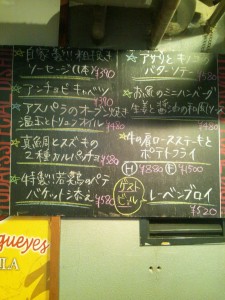 ☆自家製粗挽き
ソーセージ(1本)¥390
☆アンチョビキャベツ
¥390
☆アスパラのオーブン焼き
温玉とトリュフオイル ¥480
☆真鯛とスズキの
2種カルパッチョ ¥580
☆特製!若鶏のパテ
バゲット添え ¥580
☆アサリとキノコの
バターソテー
¥580
☆お魚のミニハンバーグ
生姜と醤油の和風ソース
¥480
☆牛の肩ロースステーキと
ポテトフライ
Ⓗ ¥880 Ⓕ ¥1500
ゲスト
ビール
レーベンブロイ
¥520
gueyes
LA